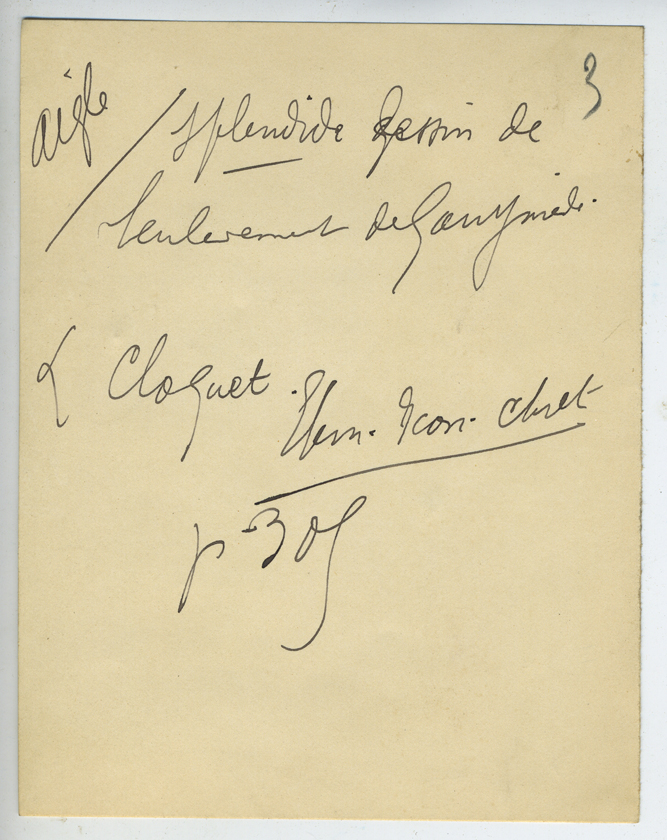 3
aigle / splendide dessin de
l'enlevement de Ganymède.
L Cloquet. Elem. Icon. chret
p. 305